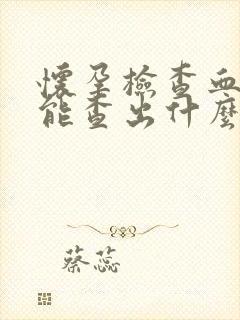 懷孕檢查血
能查出什麼
蔡蕊